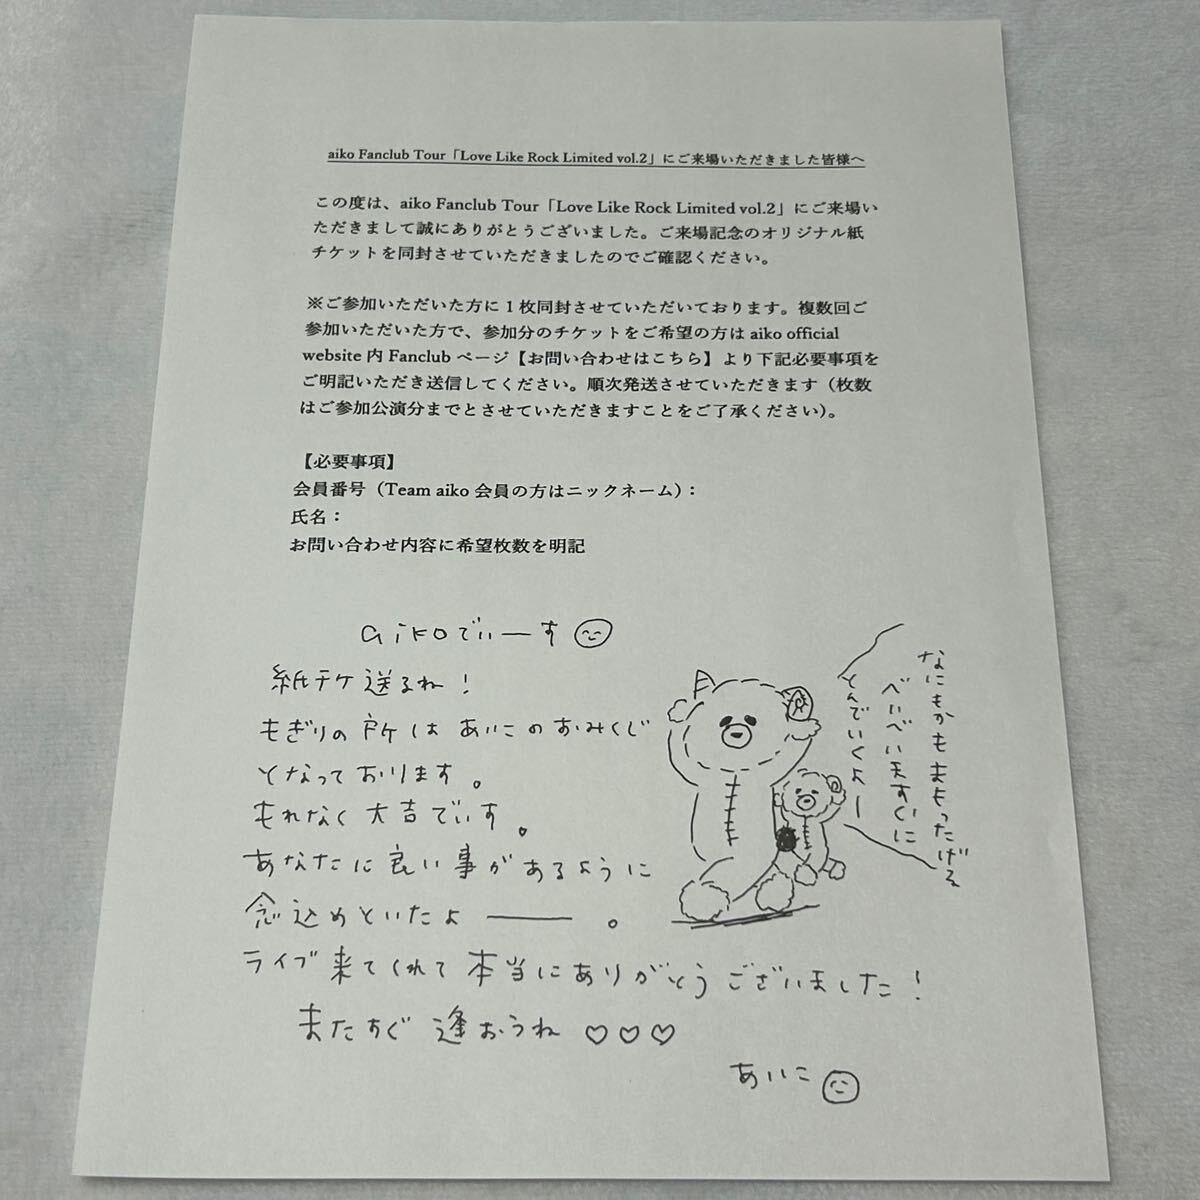 aiko Fanclub Tour「Love Like Rock Limited vol.2」にご来場いただきました皆様へ
この度は、aiko Fanclub Tour「Love Like Rock Limited vol.2」にご来場い
ただきまして誠にありがとうございました。ご来場記念のオリジナル紙
チケットを同封させていただきましたのでご確認ください。
※ご参加いただいた方に1枚同封させていただいております。複数回ご
参加いただいた方で、参加分のチケットをご希望の方は aiko official
website 内 Fanclub ページ【お問い合わせはこちら】より下記必要事項を
ご明記いただき送信してください。順次発送させていただきます（枚数
はご参加公演分までとさせていただきますことをご了承ください）。
【必要事項】
会員番号（Team aiko 会員の方はニックネーム）：
氏名：
お問い合わせ内容に希望枚数を明記
aikoでぃーす
紙チケ送るね！
もぎりの所はあいこのおみくじ
となっております。
もれなく大吉でぃす。
あなたに良い事があるように
念込めといたよ――。
ライブ来てくれて本当にありがとうございました！
またすぐ逢おうね♡♡♡
あいこ
なにもかもまもったげる
べいべいますぐに
とんでいくよー